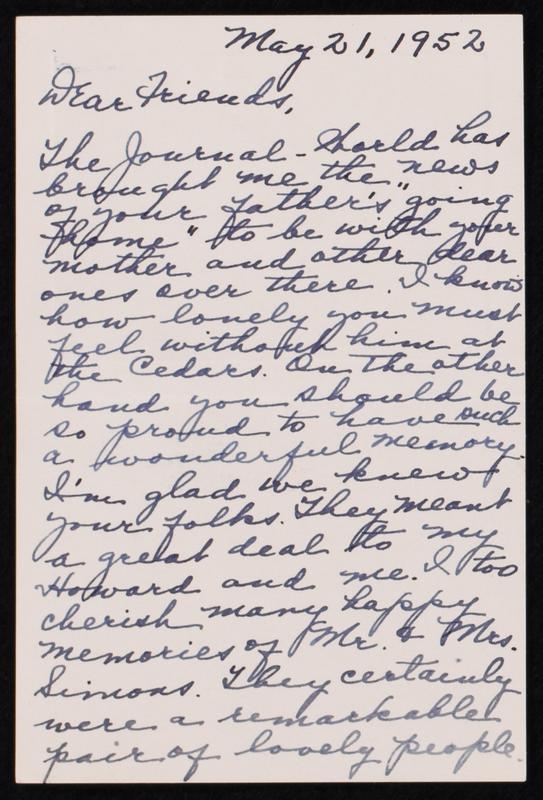 May 21, 1952
Dear Friends,
The Journal-World has
brought me the news
of your father's "going
home" to be with your
mother and other dear
ones over there. I know
how lonely you must
feel without him at
the Cedars. On the other
hand you should be
so proud to have such
a wonderful memory.
I'm glad we knew
your folks. They meant
a great deal to my
Howard and me. I too
cherish many happy
memories of Mr. & Mrs.
Simons. They certainly
were a remarkable
pair of lovely people.